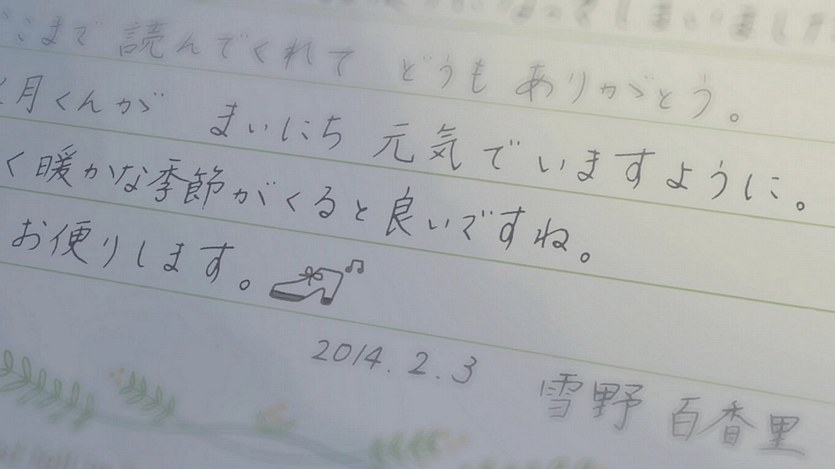 ここまで 読んでくれて どうも ありがとう。
月くんが まいにち 元気でいますように。
く暖かな季節がくると良いですね。
お便りします。
2014.2.3 雪野 百香里